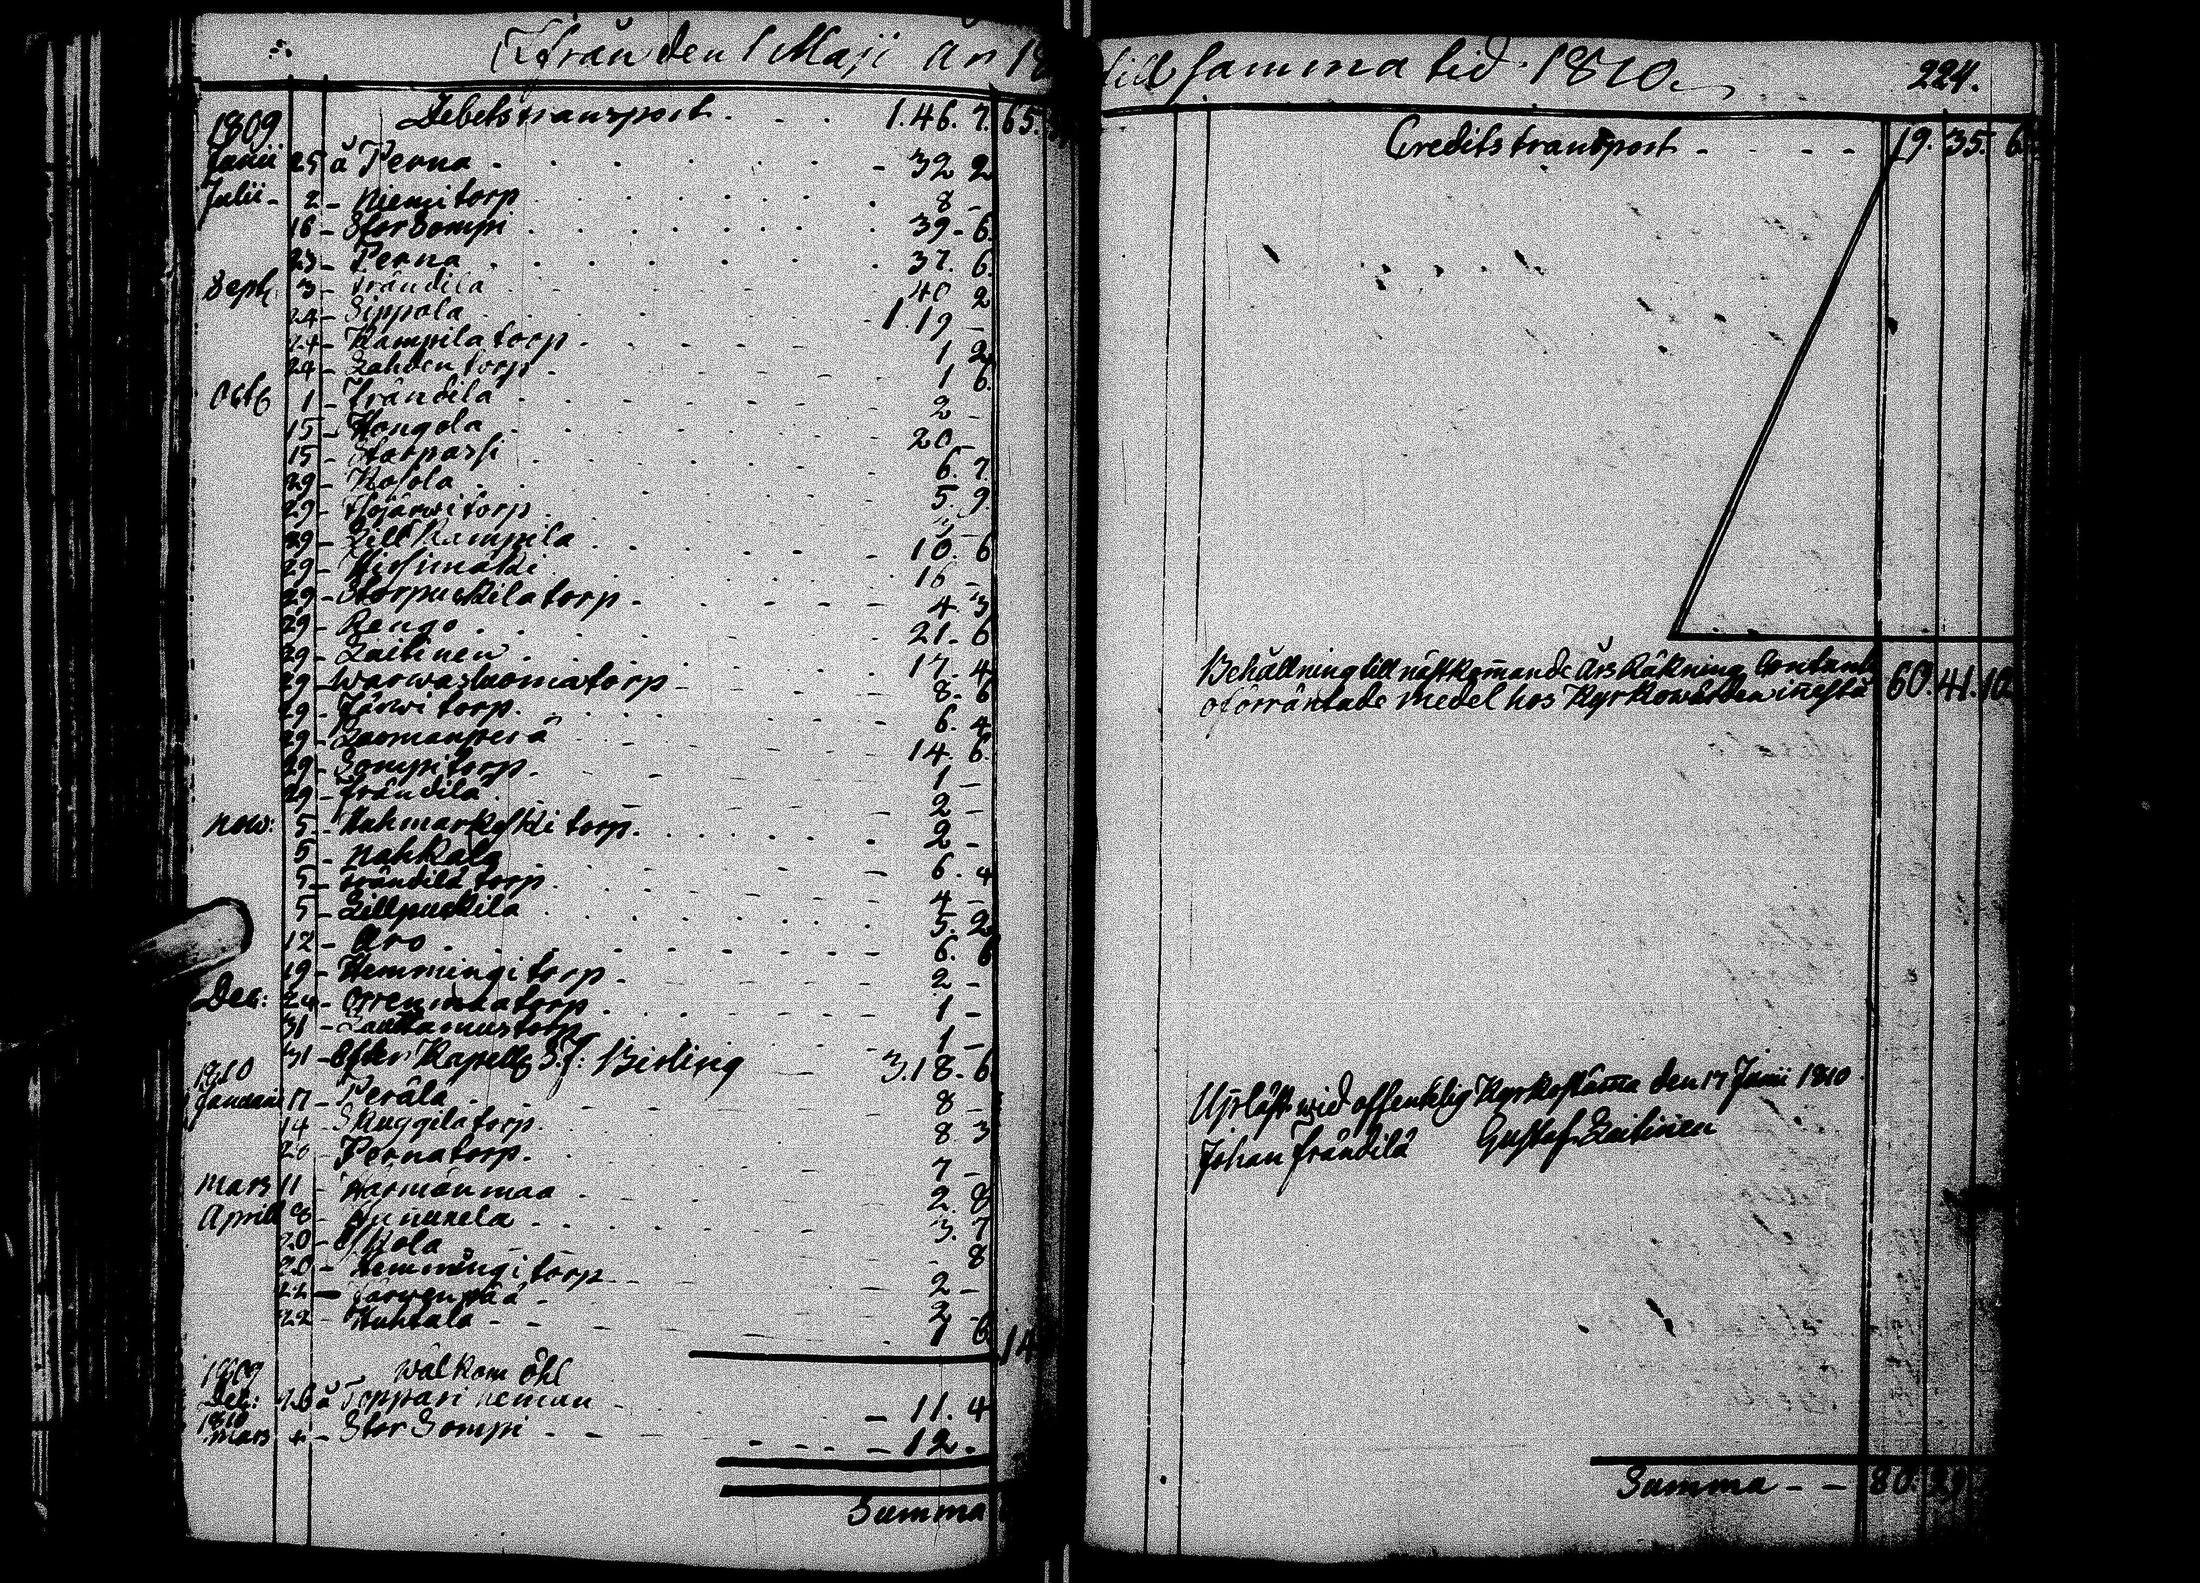 Ifrån den 1 Maji År 18
1809 Debetstransport - 1. 46. 7. 65.
Junii 25 å Perna - 39 2
Julii - 2 - Niemi torp 8 -
16 - Stor Sompi 39 - 6.
23 - Perna 37. 6.
Septb 3 - Frändilä 40 2
24 - Sippola 1. 19 -
24 - Kampila torp 1 2
24 - Lahden torp 1 6.
Octb 1 - Frändilä 2 -
15 - Hongola 20 -
15 - 6. 7.
29 - Kosola 5. 9.
29 - torp
29 - Lill Kampila 10. 6
29 - Hirsimäki 16 -
29 - Storpuckila torp - 4. 3
29 - Rengo 21 - 6
29 - Laitinen 17. 4
29 - Warwasluoma torp 8 - 6
29 - Järwi torp. 6. 4
29 - Luomanperä 14. 6.
29 - Sompi torp - 1 -
29 - Frändilä 2 -
Now: 5 - torp. 2 -
5 - Nahkala 6. 4
5 - Frändilä torp 4 -
5 - Lillpuckila 5. 2
12 - Aro - 6. 6
19 - Hemmingi torp - 2 -
Dec: 24 - torp 1 -
31 - torp 1 -
31 - Efter Kapellb S. J: Birling 3. 18 - 6
1810
Januari 7 - Perälä 8 -
14 - Skuggila torp. 8. 3
28 - Perna torp. 7 -
Mars 11 - Härmänmaa 2. 8
April 8 - 3. 7
20 - 8
20 - Hemmingi torp - 2 -
22 - Järwenpää - 2 -
22 - Huhtala - 1 6. 14
1809 Wälkom öhl
Dec: 26 å Toppari heman - 11. 4
1810
Mars 4 - Stor Sompi - 12 -
Summa
till samma tid 1810. 224.
Credits transport - 19. 35. 6
Behållning till nästkommande Års Räkning Contant
oförräntade medel hos Kyrkowärden innestå 60. 41. 10
Upläst wid offentelig Kyrkostämma den 17 Junii 1810
Johan Frändilä Gustaf Laitinen
Summa - - 80. 29